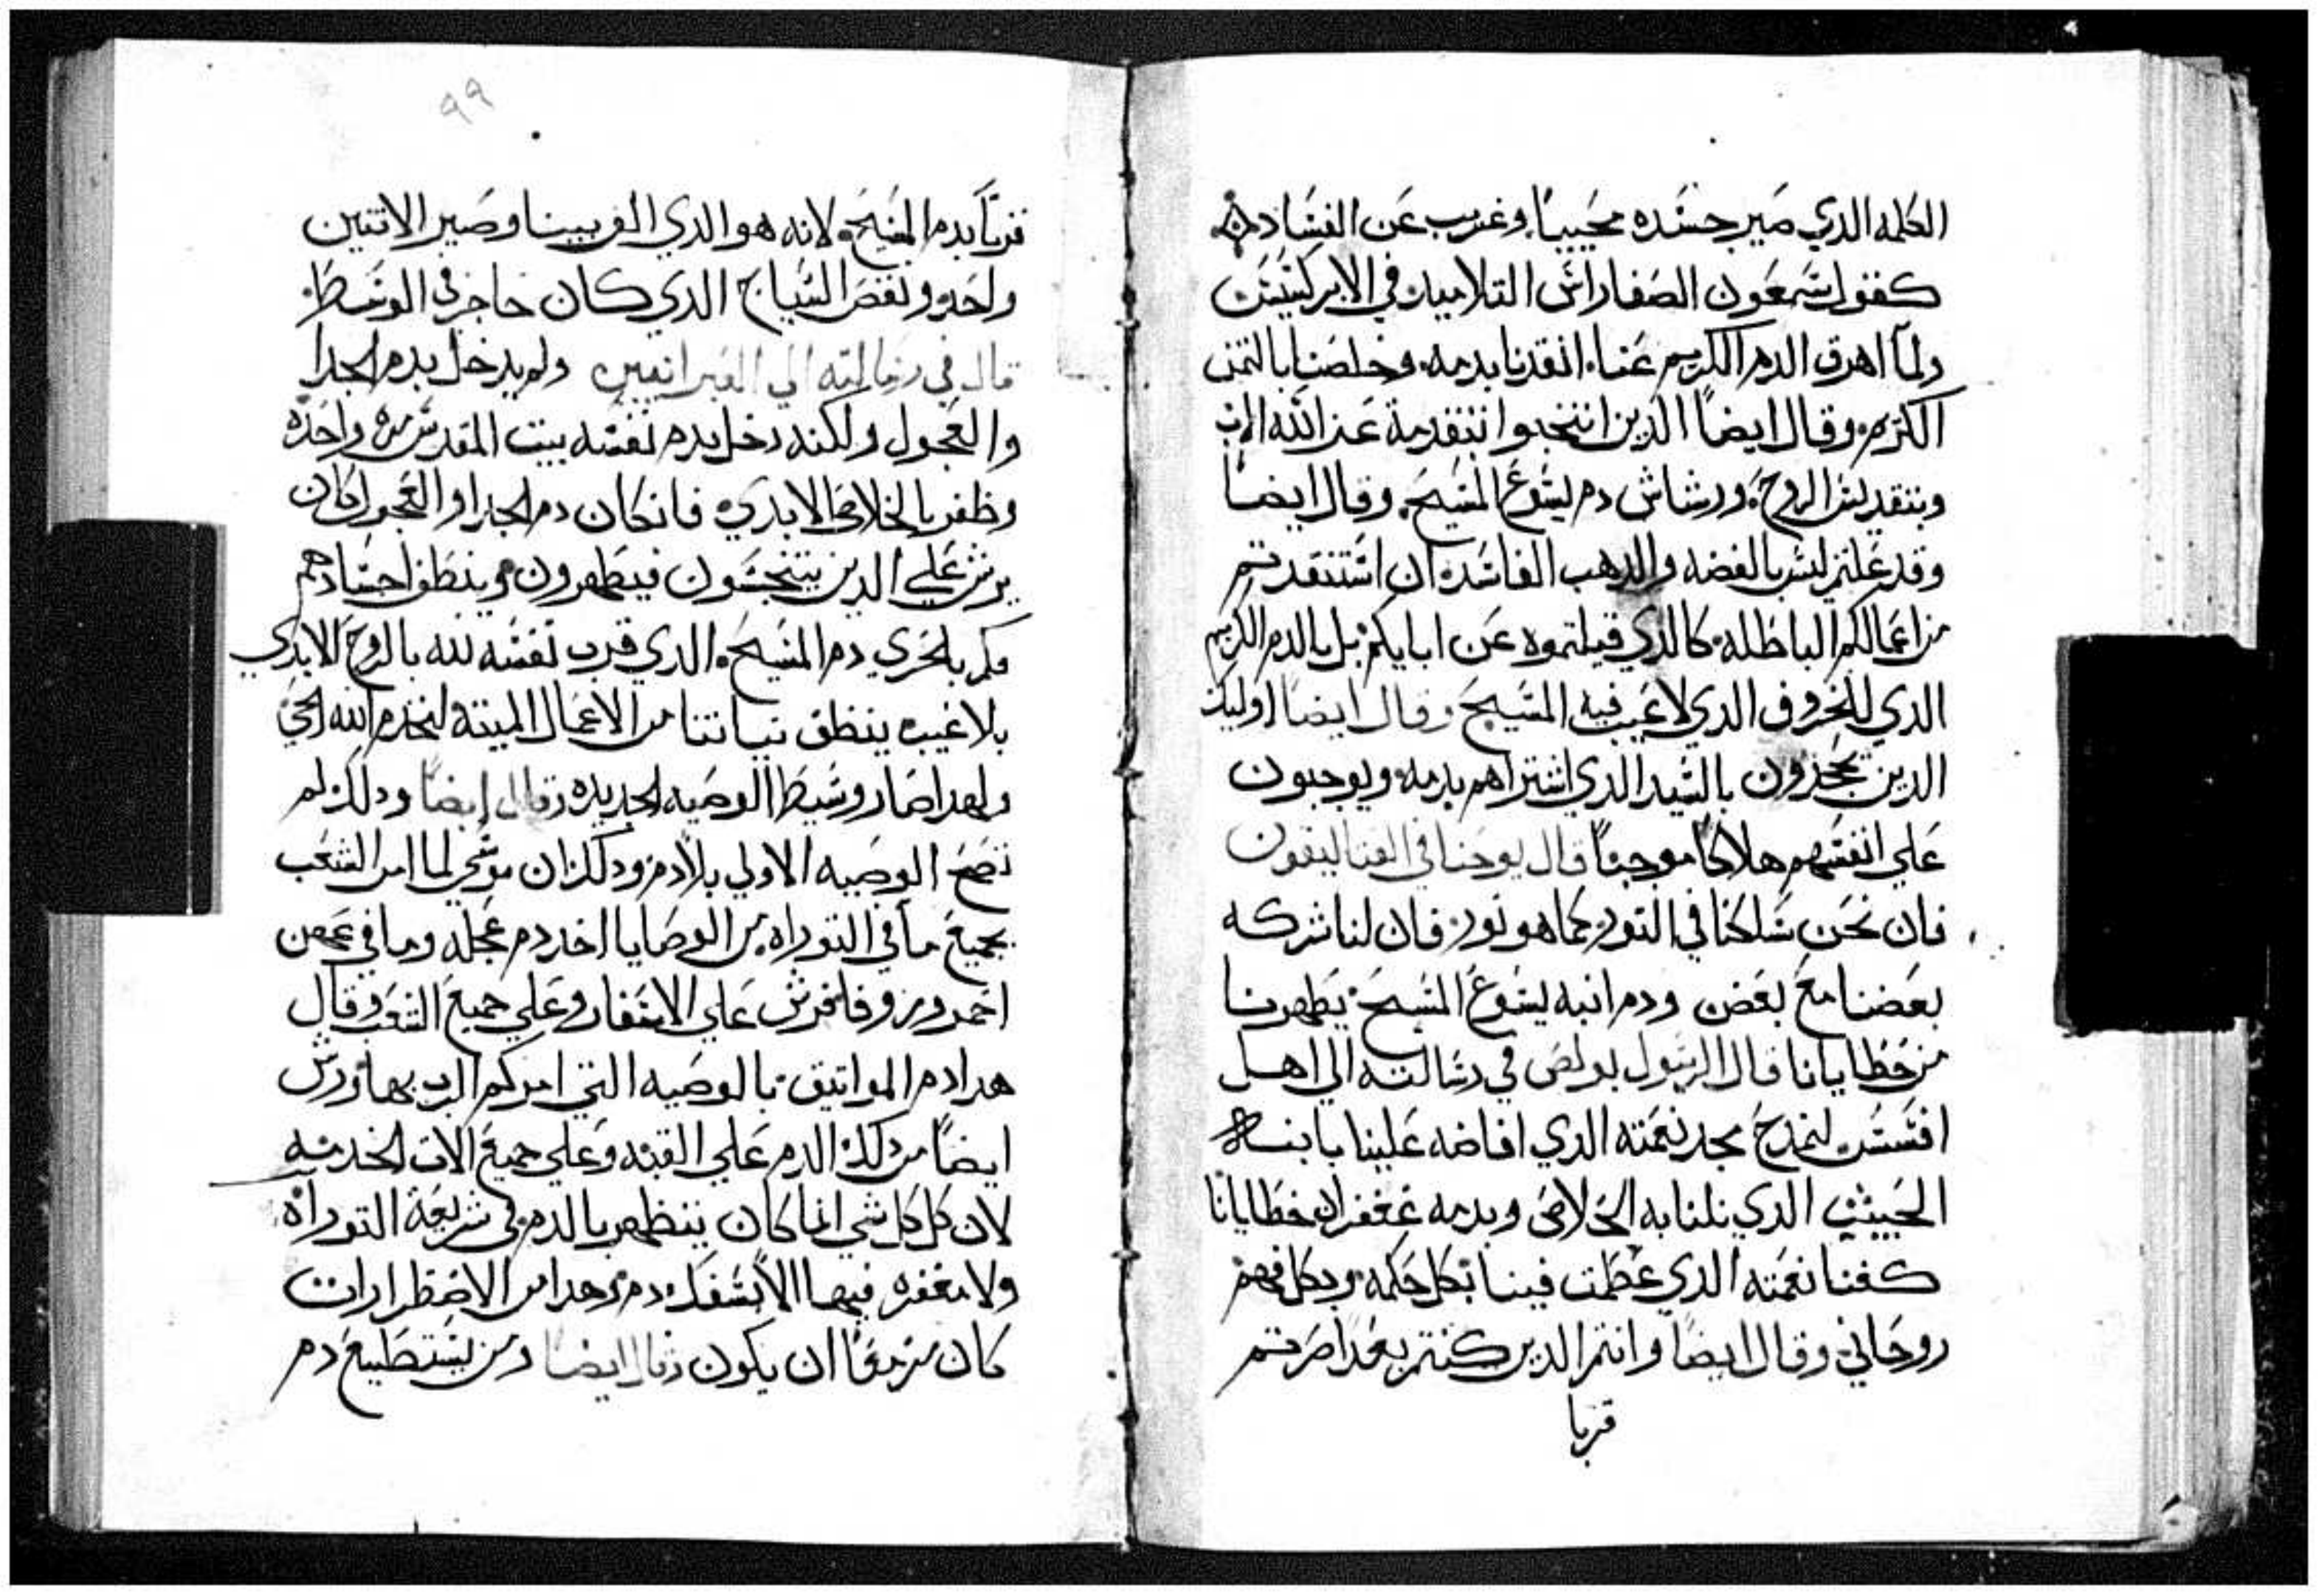 الكلمه الدي صير جسده محييا وغريب عن الفساد
كقول سمعون الصفا راس التلاميد في الابركسيس
ولما اهرق الدم الكريم عنا انقدنا بدمه وخلصنا بالتمن
الكريم وقال ايضا الدين انتخبوا بتقدمة عند الله الاب
وبتقديس الروح ورشاش دم يسوع المسيح وقال ايضا
وقد علمتم ليس بالفضه والدهب الفاسده ان استنقدتم
من اعمالكم الباطله كالدي قبلتموه عن ابايكم بل بالدم الكريم
الدي للخروف الدي لا عيب فيه المسيح وقال ايضا اوليك
الدين يجحدون بالسيد الدي اشتراهم بدمه ويوجبون
علي انفسهم هلاكا موجبا قال يوحنا في القتاليقون
فان نحن سلكنا في النور كما هو نور فان لنا شركه
بعضنا مع بعض ودم ابنه يسوع المسيح يطهرنا
من خطايانا قال الرسول بولص في رسالته الي اهل
افسس لنمدح مجد نعمته الدي افاضه علينا بابنه
الحبيب الدي نلنا به الخلاص وبدمه غفران خطايانا
كغنا نعمته الدي عظمت فينا بكل حكمه وبكل فهم
روحاني وقال ايضا وانتم الدين كنتم بعدا صرتم
قربا
٩٩
قربا بدم المسيح لانه هو الدي الف بيننا وصير الاتنين
واحد ونقض السياج الدي كان حاجز في الوسط
قال في رسالته الي العبرانيين ولم يدخل بدم الجدا
والعجول ولكنه دخل بدم نفسه بيت المقدس مره واحده
وظفر بالخلاص الابدي فان كان دم الجدا والعجول كان
يرش علي الدين يتنجسون فيطهرون وينظف اجسادهم
فكم بالحري دم المسيح الدي قرب نفسه لله بالروح الابدي
بلا عيب ينظف نياتنا من الاعمال الميته لنخدم الله الحي
ولهدا صار وسيط الوصيه الجديده وقال ايضا ودلك لم
تصح الوصيه الاولي بلا دم ودلك ان موسي لما امر الشعب
بجميع ما في التوراه من الوصايا اخد دم عجله وما في
احمر وزوفا فرش علي الاسفار وعلي جميع الشعب وقال
هدا دم المواتيق بالوصيه التي امركم الرب بها ورش
ايضا من دلك الدم علي القبه وعلي جميع الات الخدمه
لان كل كل شي انما كان يتطهر بالدم في شريعة التوراه
ولا مغفره فيها الا بسفك دم وهدا من الاضطرارات
كان ان يكون وقال ايضا ومن يستطيع دم